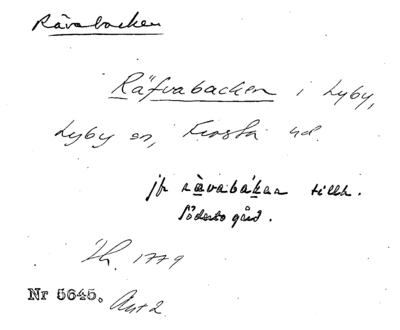 Rävabacken
Räfvabacken i Lyby,
Lyby sn, Frosta hd.
jfr rävabakan tillh.
Södersto gård.
Th. 1779
Nr 5645. Avt 2